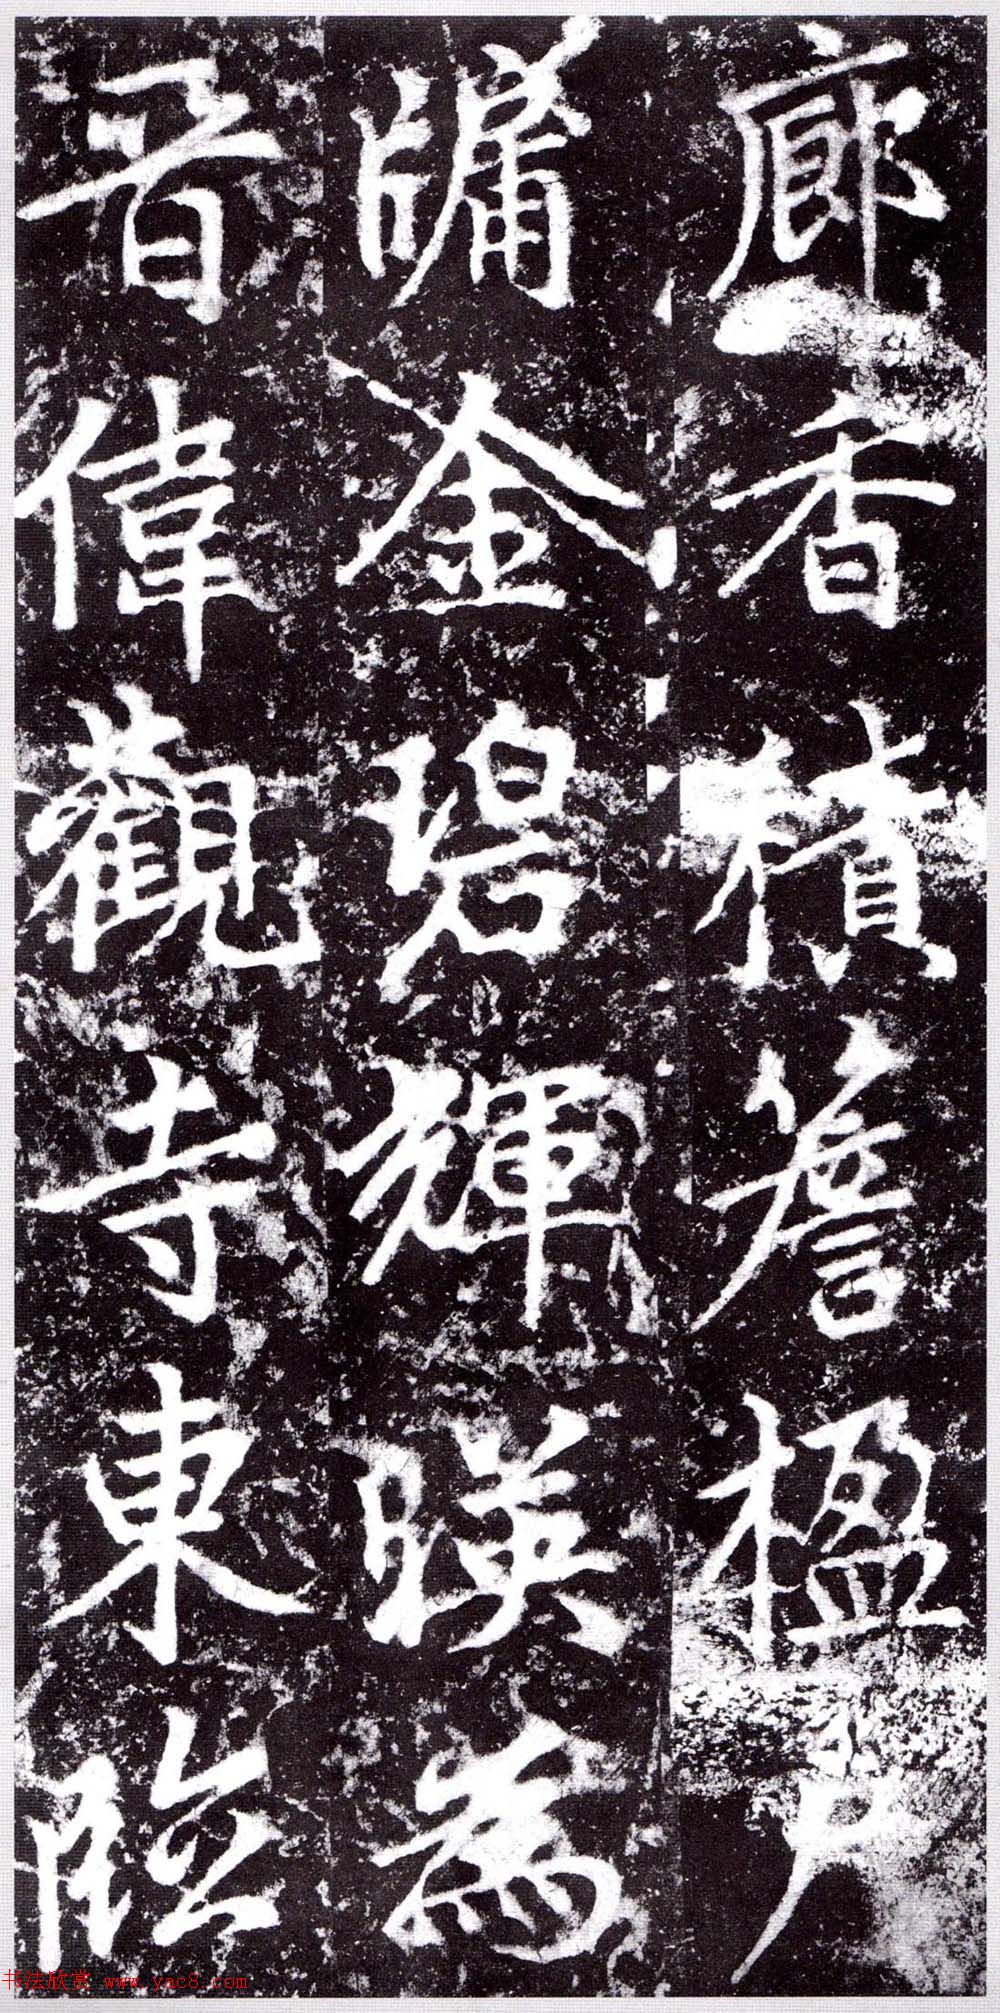 廊香積簷楹户
牖金碧輝暎為
晉偉觀寺東臨
书法欣赏 www.yac8.com